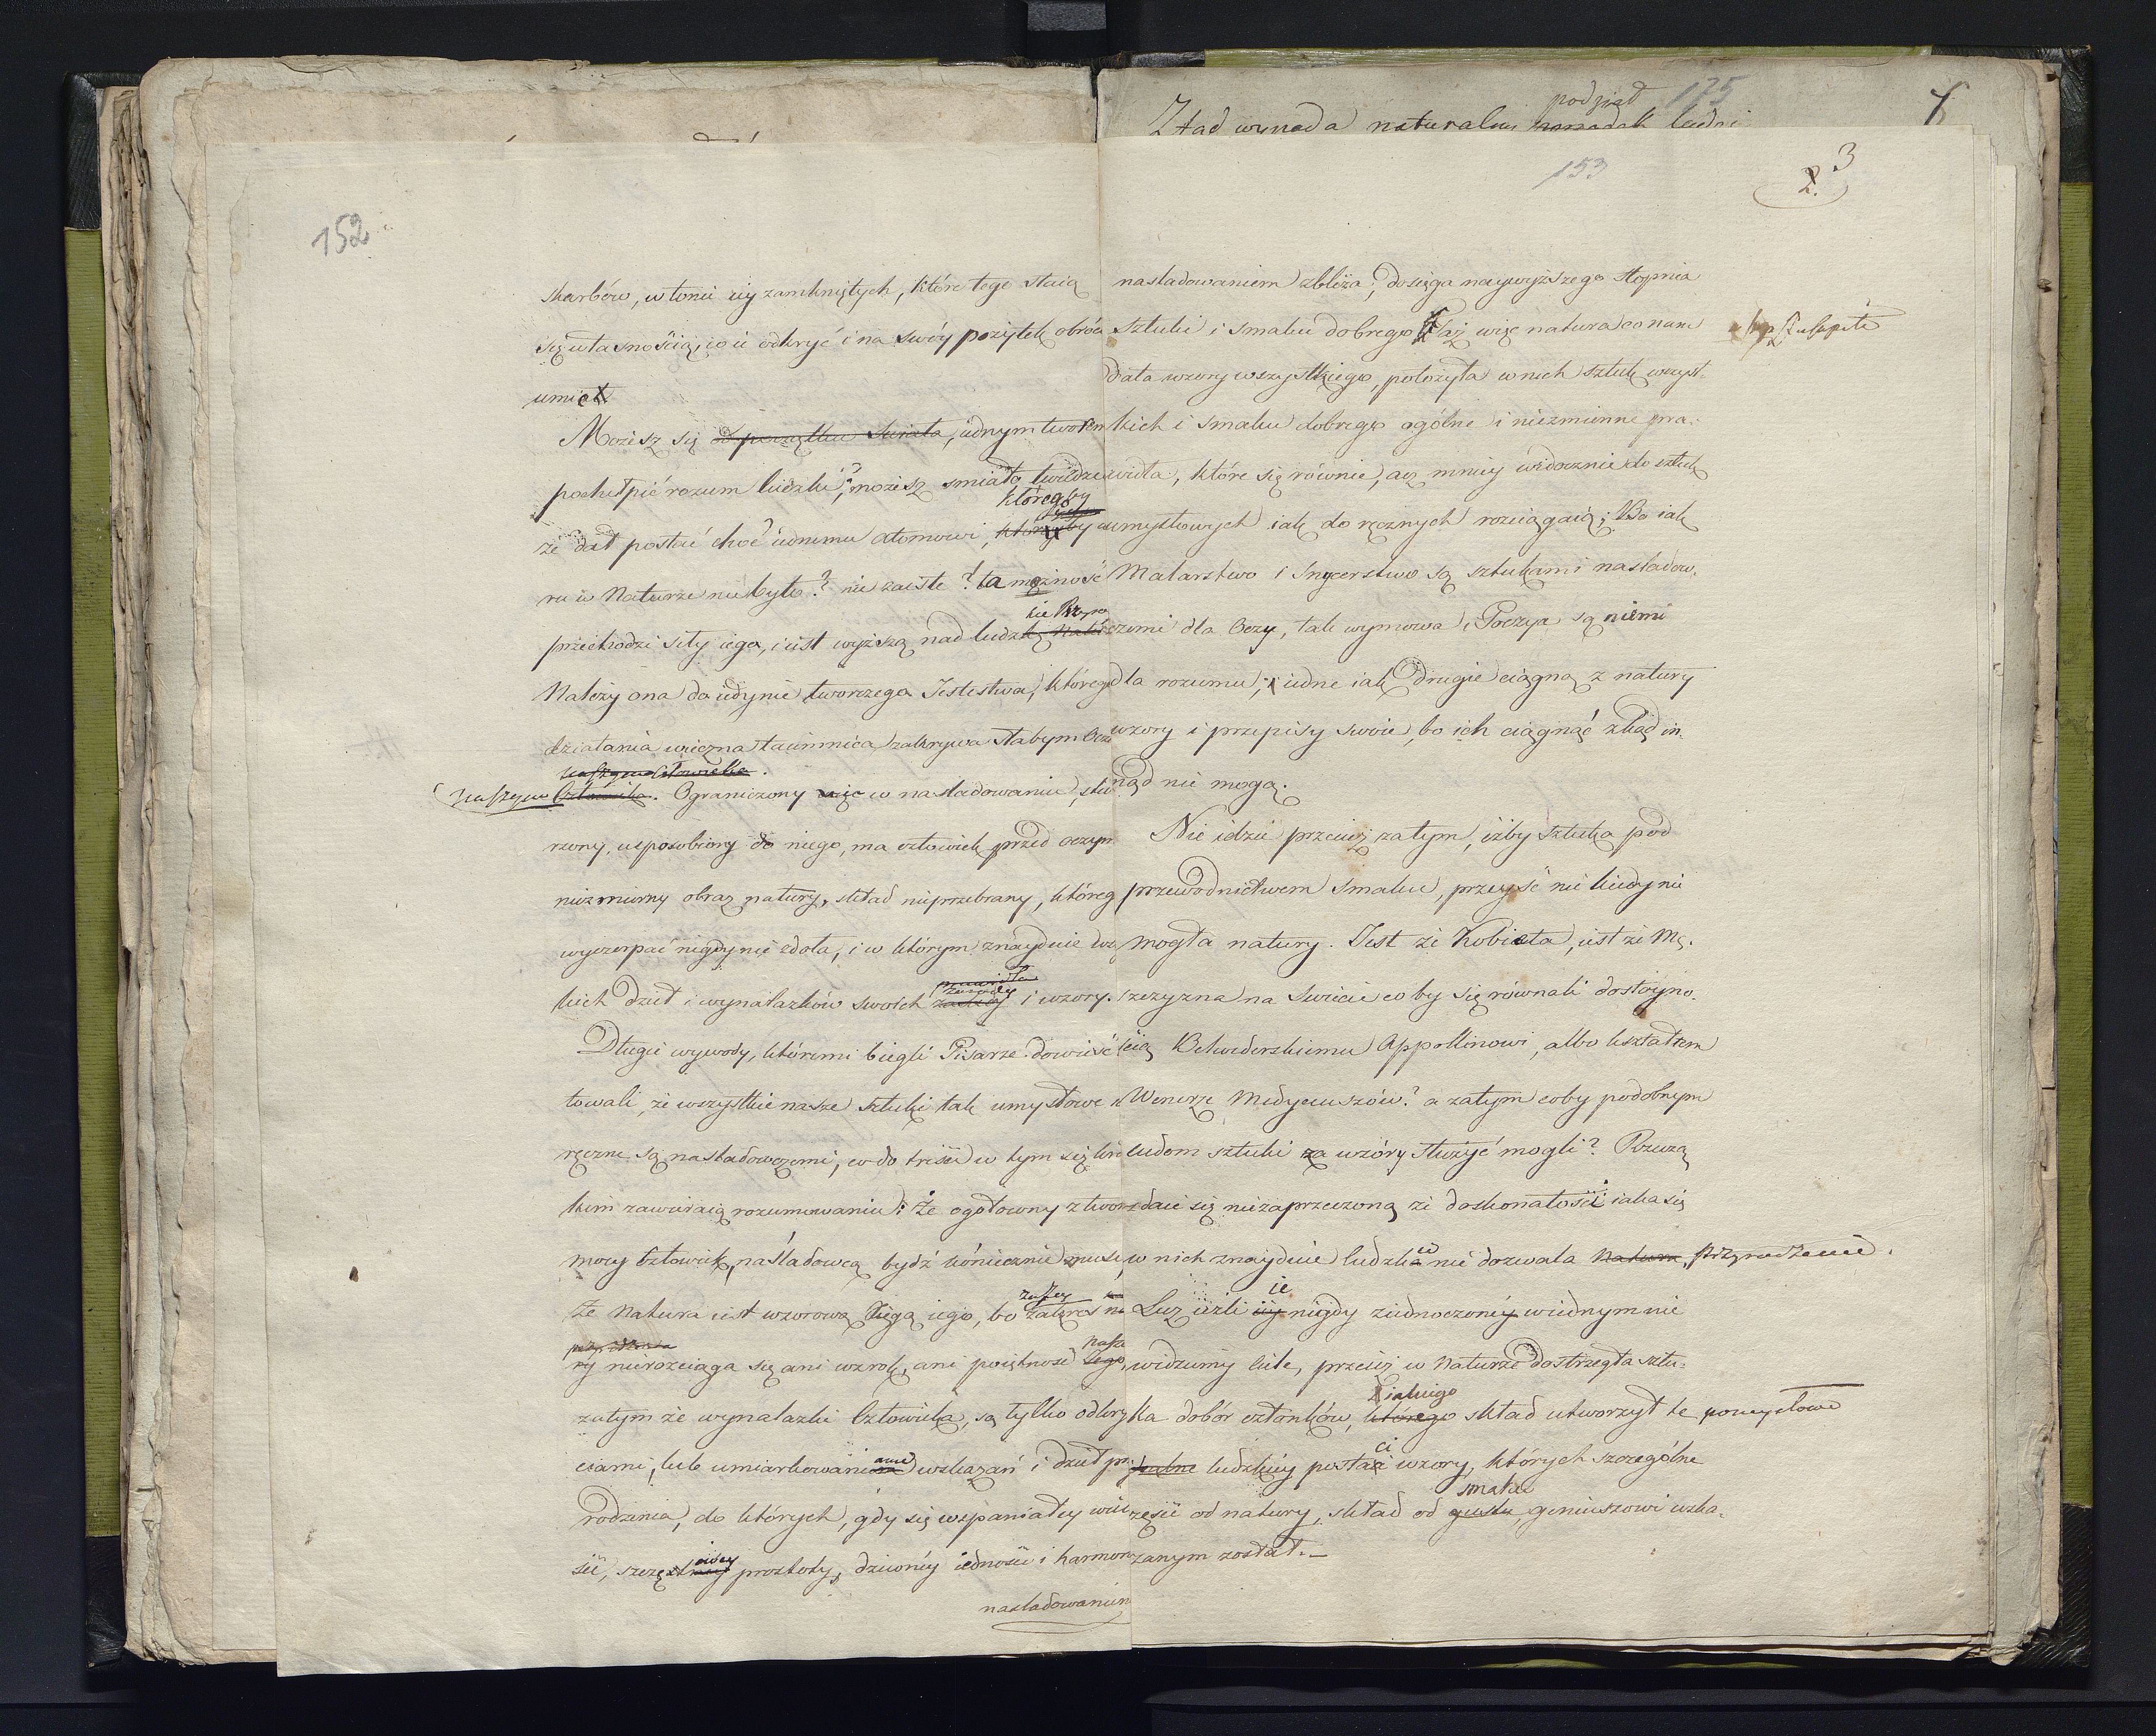 152
skarbów, w łonie iey zamkniętych, które tego staią
się własnością, co ie odkryć i na swóy pożytek obróci
umiał.
Możesz się od początku świata, iednym tworem
pochełpić rozum ludzki? możesz śmiało twierdzi
któregoby
że dał postać choć iednemu atomowi, któryby w
ru w Naturze nie było? nie zaiste! ta możność
przechodzi siły iego, iest wyższą nad ludzką
Należy ona do iedynie tworczego Jestestwa, którego
działania wieczna taiemnica zakrywa słabym Ocz
naszym Człowieka.
naszym Człowieka. Ograniczony więc w naśladowaniu, stwo
rzony, usposobiony do niego, ma człowiek przed oczym
niezmierny obraz natury, skład nieprzebrany, któreg
wyczerpać nigdy nie zdoła, i w którym znayduie wsz
prawidła
zasady
kich dzieł i wynalazków swoich zasady i wzory.
Długie wywody, któremi biegli Pisarze dowieść
towali, że wszystkie nasze sztuki tak umysłowe i
ręczne są naśladowczemi, co do treści w tym się krót
kim zawieraią rozumowaniu: że ogołocony z twor
mocy Człowiek, naśladowcą bydź koniecznie musi,
że Natura iest wzorową Xięgą iego, bo za Jey zakres
ry nierozciąga się ani wzrok, ani poiętność nasza iego,
zatym że wynalazki Człowieka, są tylko odkry
ciami, lub umiarkowaniami wskazań i dzieł pr
rodzenia, do których, gdy się wspaniałey wiel
ści, szczęśliwey prostoty, dziwney iedności i harmon
naśladowaniem
Ztąd wypada naturalny podział ludzi
175
153
2. 3
naśladowaniem zbliża, dosięga naywyższego stopnia
sztuki i smaku dobrego. Taż więc natura co nam
dała wzory wszystkiego, położyła w nich sztuk wszyst-
kich i smaku dobrego ogólne i niezmienne pra-
widła, które się równie, acz mniey widocznie do sztuk
umysłowych iak do ręcznych rozciągaią; Bo iak
Malarstwo i Snycerstwo są sztukami naśladow-
czemi dla Oczu, tak wymowa i Poezya są niemi
dla rozumu; iedne iak drugie ciągną z natury
wzory i przepisy swoie, bo ich ciągnąć zkąd in-
nąd nie mogą.
Nie idzie przecież zatym, iżby sztuka pod
przewodnictwem smaku, przeyść nie kiedy nie
mogła natury. Jest że kobieta, iest że Mę-
szczyzna na świecie coby się równali dostoyno-
ścią Belwederskiemu Appollinowi, albo kształtem
Wenerze Medyceuszów? a zatym coby podobnym
cudom sztuki za wzóry służyć mogli? Rzuca
daie się niezaprzeczoną że doskonałości iaka się
w nich znayduie ludzkiey nie dozwala Natura, przyrodzenie.
Lecz ieżeli iey ie nigdy ziednoczoney w iednym nie
widziemy ciele, przecież w Naturze dostrzegła sztu-
ka dobór członków, którego iakiego skład utworzył te pomysłowe
ludzkiey postaci wzory, których szczególne
części od natury, skład od gustu smaku geniuszowi wska-
zanym został.—